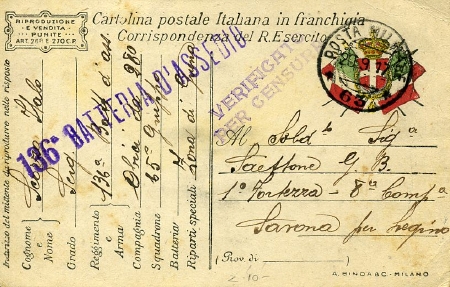 RIPRODUZIONE
E VENDITA
PUNITE
ART. 268 E 270 C.P.
Cartolina postale Italiana in franchigia
Corrispondenza del R. Esercito
POSTA MILITARE
63
VERIFICATO
PER CENSURA
136ª BATTERIA D'ASSEDIO
Indirizzo del mittente da riprodurre nella risposta
Cognome e Nome
Grado
Reggimento e Arma 136ª Batt. d'ass.
Compagnia Obici da 280
Squadrone 65° Gruppo
Batteria
Riparti speciali Zona di Guerra
Al Sold. Sig.
Saettone G B
1° Fortezza - 8ª Compª
Savona per Legino
(Prov. di )
A. BINDA & C. - MILANO